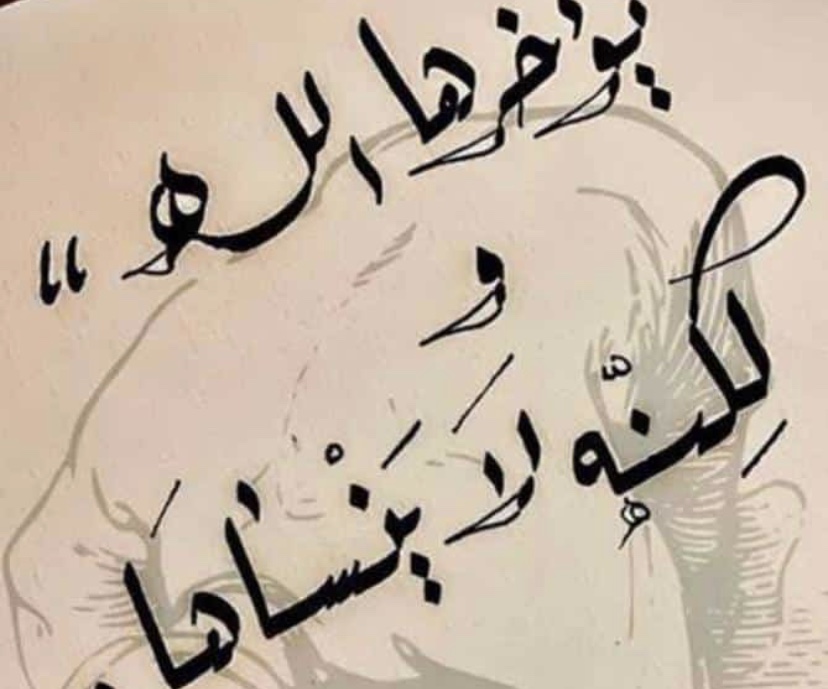 يؤخرها الله "
و
لٰكِنّه لاَ يَنْساهَا